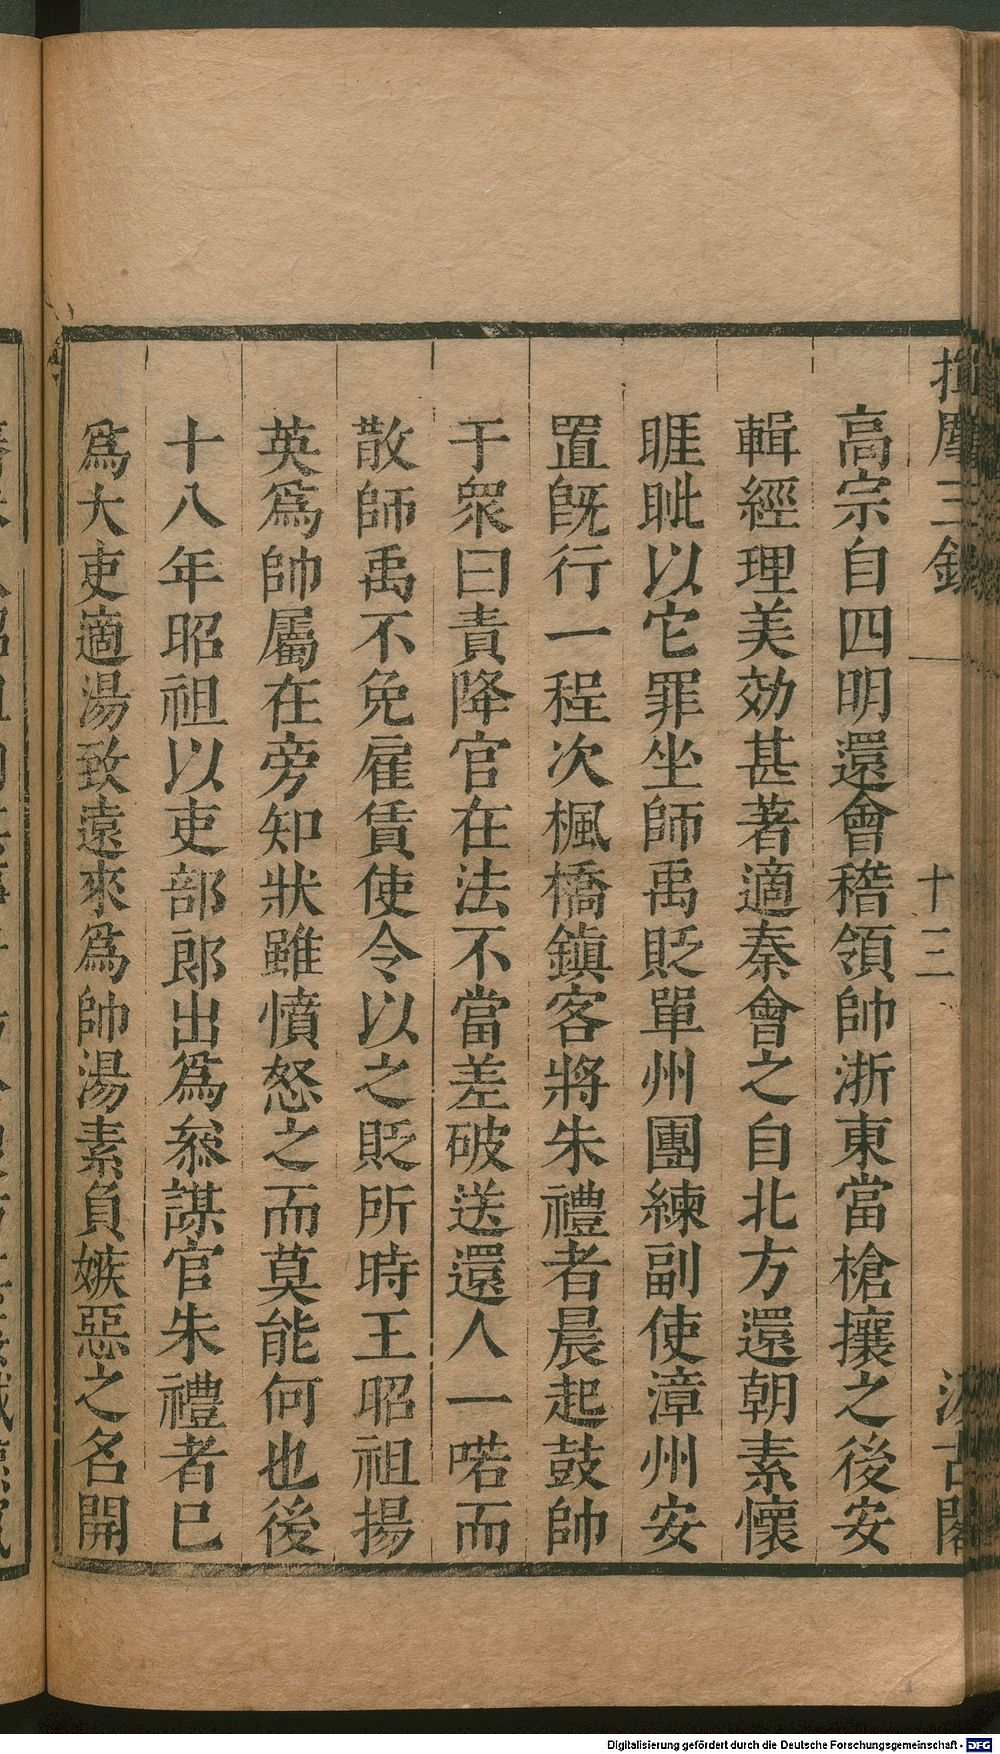 揮麈三錄
十三
汲古閣
高宗自四明還會稽領帥浙東當槍攘之後安
輯經理美効甚著適秦會之自北方還朝素懷
睚眦以它罪坐師禹貶單州團練副使漳州安
置旣行一程次楓橋鎮客將朱禮者晨起鼓帥
于衆曰責降官在法不當差破送還人一喏而
散師禹不免雇賃使令以之貶所時王昭祖揚
英爲帥屬在旁知狀雖憤怒之而莫能何也後
十八年昭祖以吏部郞出爲叅謀官朱禮者巳
爲大吏適湯致遠來爲帥湯素負嫉惡之名開
Digitalisierung gefördert durch die Deutsche Forschungsgemeinschaft - DFG